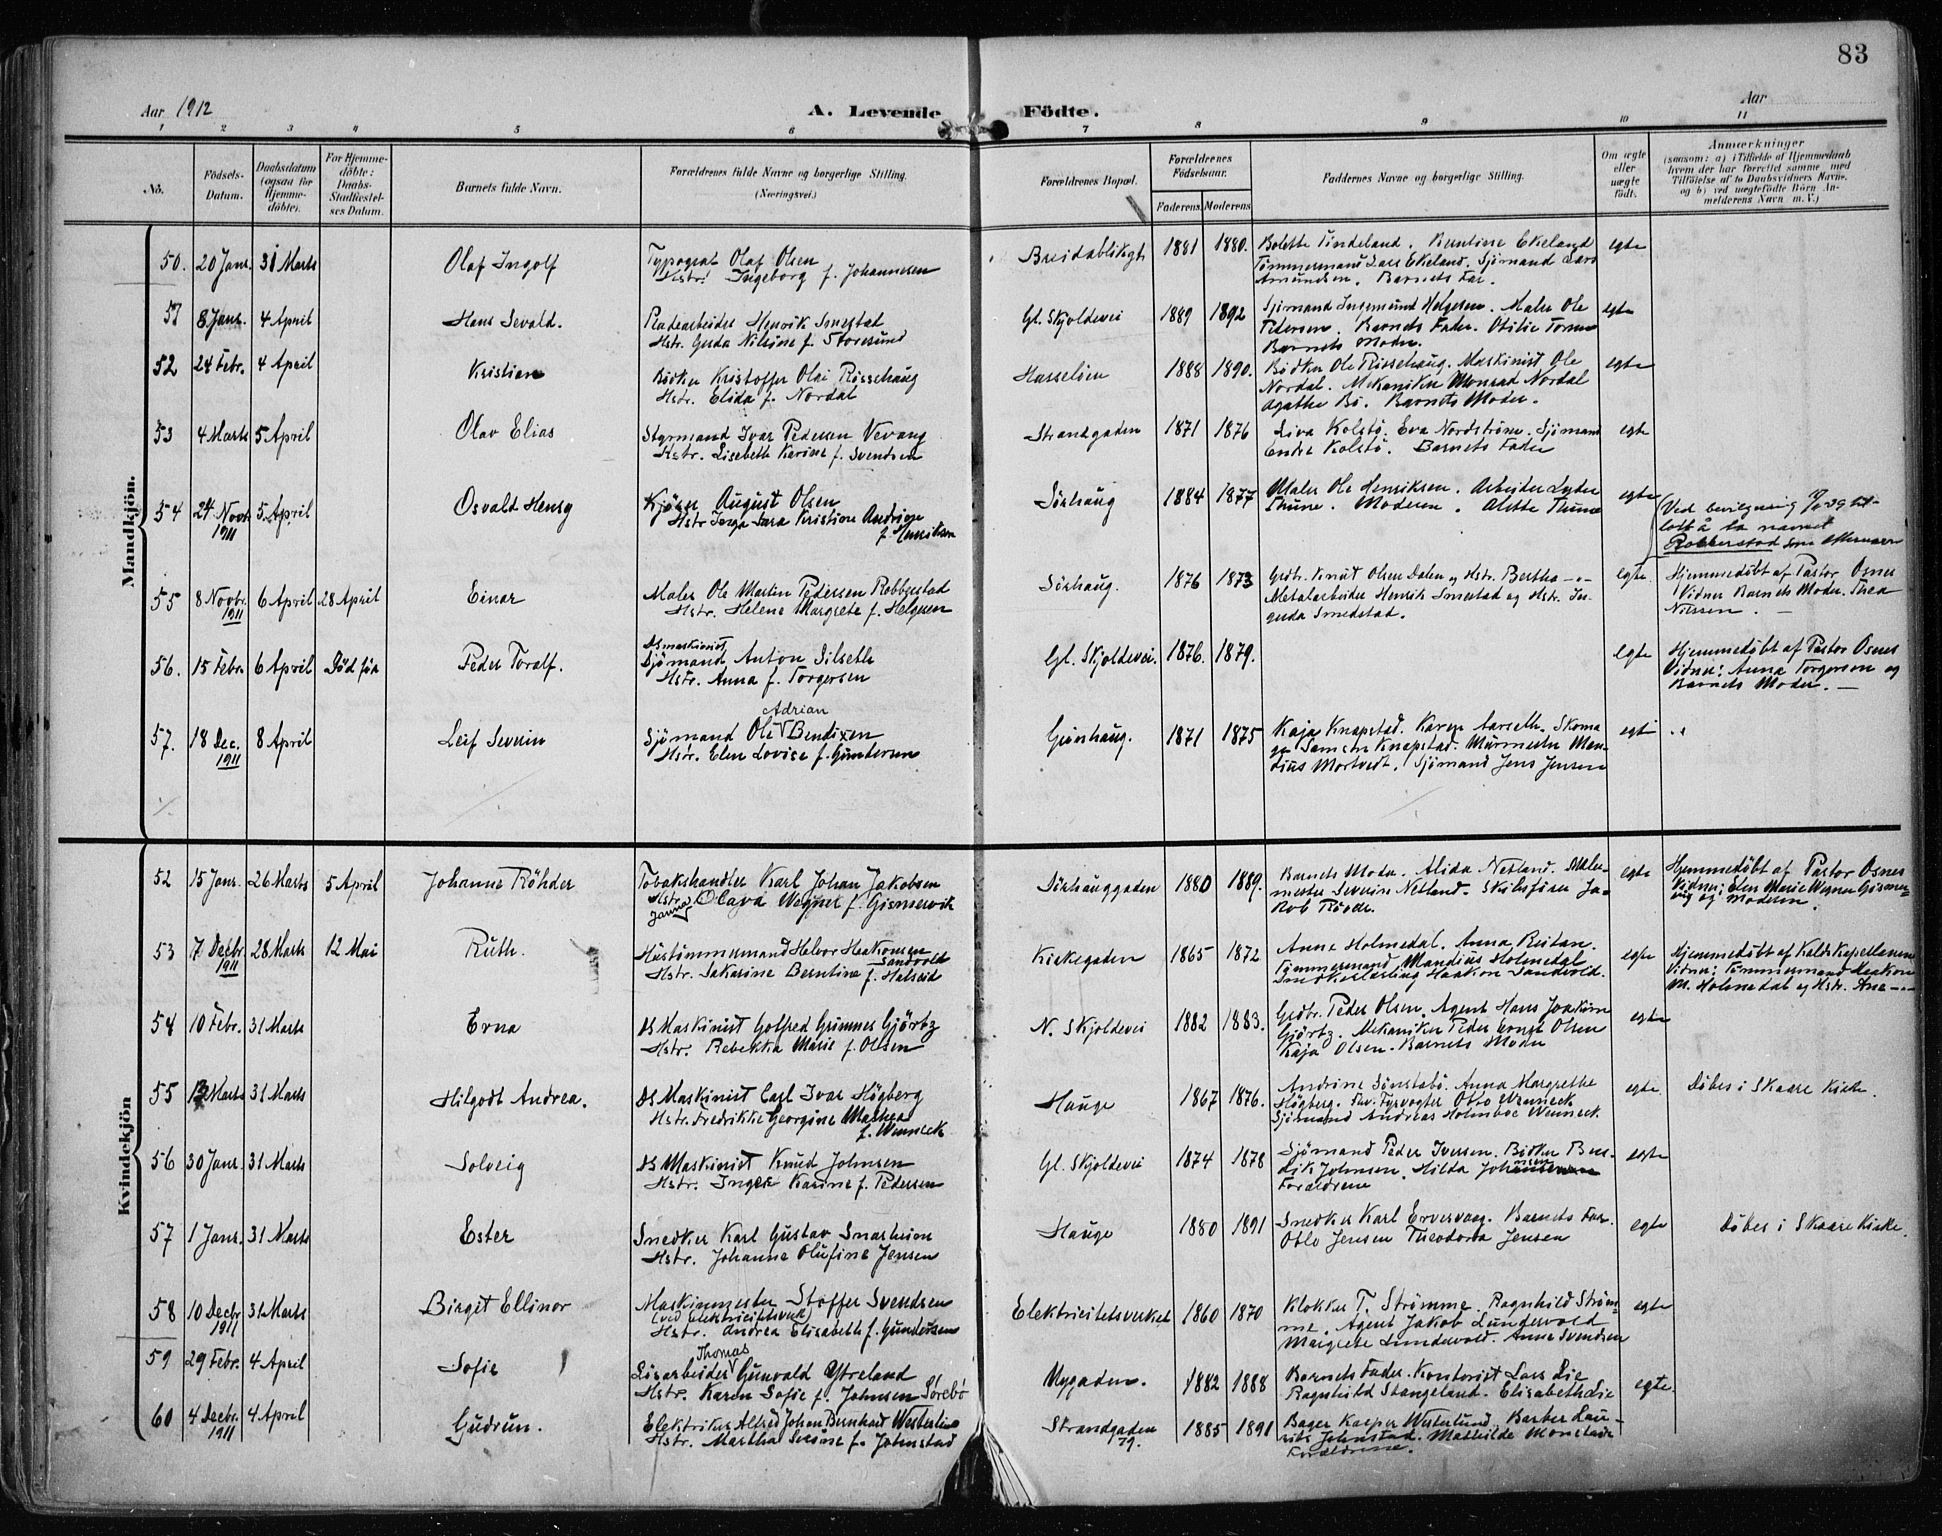 83
Aar 1912
A. Levende Födte.
Aar
1 2 3 4 5 6 7 8 9 10 11
No.
Födsels-Datum.
Daabsdatum (ogsaa for Hjemme-döbte).
For Hjemme-döbte: Daabs-Stadfæstel-ses Datum.
Barnets fulde Navn.
Forældrenes fulde Navne og borgerlige Stilling. (Næringsvei.)
Forældrenes Bopæl.
Forældrenes Födselsaar.
Faderens. Moderens
Faddernes Navne og borgerlige Stilling.
Om ægte eller uægte födt.
Anmærkninger
(saasom: a) i Tilfælde af Hjemmedaab hvem der har forrettet samme med Tilföielse af to Daabsvidners Navne, og b) ved uægtefödte Börn An-melderens Navn m. V.)
Mandkjön.
50. 20 Janr. 31 Marts Olaf Ingolf Typograf Olaf Olsen Breidabliksgt 1881 1880. Bolette Tindeland. Berntine Ekeland egte
Hstr. Ingeborg f. Johannesen Tømmermand Lars Ekeland. Sjömand Lars
Amundsen. Barnets Far.
51 8 Janr. 4 April Hans Sevald. Henrik Smestad Gl. Skjoldevei 1889 1892 Sjömand Ingemund Helgesen. Maler Ole egte
Hstr. Guda Nilsine f. Storesund Pedersen. Barnets Fader. Otilie
Barnets Moder.
52 24 Febr. 4 April Kristian Bödker Kristoffer Olai Rössehaug Hasselöen 1888 1890. Bödker Ole Rössehaug. Maskinist Ole egte
Hstr. Elida f. Nordal Nordal. Mekaniker Monrad Nordal
Agathe Bö. Barnets Moder.
53 4 Marts 5 April Olav Elias Styrmand Ivar Pedersen Vevang Strandgaden 1871 1876 Kolstö. Eva Nordström. Sjömand egte
Hstr. Lisebeth Karine f. Svendsen Endre Kolstö. Barnets Fader
54 24 Novbr 1911 5 April Osvald Henry August Olsen Sörhaug 1884 1877 Maler Ole Henriksen. Arbeider egte
Hstr Inga Sara Kristine Andrine Thune. Moderen. Alette Thune
f. Henriksen
Ved bevilgning 29 til-
latt å ta navnet
som efternavn
55 8 Novbr. 1911 6 April 28 April Einar Maler Ole Martin Pedersen Robberstad Sörhaug. 1876 1873 Grdbr. Knut Olsen Dalen og Hstr. Bertha -"- egte.
Hstr. Helene Margrete f. Helgesen Metalarbeider Henrik Smestad og Hstr. In-
guda Smedstad.
Hjemmedöbt af Pastor Osnes
Vidner Barnets Moder. Thea
Nilssen. -
56. 15 Febr. 6 April Död för Peder Toralf. Dsmaskinist
Sjömand Anton Silseth Gl. Skjoldevei. 1876. 1879. egte
Hstr. Anna f. Torgersen
Hjemmedöbt af Pastor Osnes
Vidner: Anna Torgersen og
Barnets Moder. -
57. 18 Dec. 1911 8 April Leif Severin Adrian
Sjömand Ole V Bendixen Grönhaug. 1871 1875 Kaja Knapstad. Karen Aarseth. Skoma egte
Hstr. Elen Lovise f. Gundersen Knapstad. Murmester Man-
dius Mortvedt. Sjömand Jens Jensen
Kvindekjön
52 15 Janr. 26 Marts 5 April Johanne Röhder Tobakshandler Karl Johan Jakobsen Sörhauggaden 1880 1889. Barnets Moder. Alida Netland. Maler- egte
Hstr. Janna Olava Wegner f. Gismervik mester Severin Netland. Skibsförer Ja-
kob
Hjemmedöbt af Pastor Osnes
Vidner: Elen Marie Wegner Gismer-
vig og Moderen.
53 7 Decbr 1911 28 Marts 12 Mai Ruth. Hustömmermand Helvor Haakonsen Sandvold Kirkegaden 1865 1872 Anne Holmedal. Anna Reitan. egte
Hstr. Sakarine Berntine f. Halseid Tömmermand Mandius Holmedal
Snedkerlærling Haakon Sandvold.
Hjemmedöbt af Kaldskapellanen
Vidner: Tömmermand Haakon
M. Holmedal og Hstr. Ane -"-
54 10 Febr. 31 Marts Erna Ds Maskinist Gotfred Grimnes Gjörtz N. Skjoldevei 1882 1883. Grdbr. Peder Olsen. Agent Hans Joakim egte
Hstr. Rebekka Marie f. Olsen Gjörtz. Mekaniker Peder Ernst Olsen
Kaja Olsen. Barnets Moder
55 Marts 31 Marts Hilgodt Andrea. Ds Maskinist Carl Ivar Högberg Hauge 1867 1876. Andrine Sönstabö. Anna Margrethe egte
Hstr. Fredrikke Georgine Mathea Högberg. Otto Wenneck
f. Wenneck Sjömand Andreas Holmboe Wenneck.
Döbes i Skaare Kirke.
56 30 Janr. 31 Marts Solveig Ds Maskinist Knud Johnsen Gl. Skjoldevei 1874 1878 Sjömand Peder Iversen. Bödker Ben- egte
Hstr. Karine f. Pedersen dik Johnsen. Hilda Johnsen
Forældrene
57 1 Janr. 31 Marts Ester Snedker Karl Gustav Hauge 1880 1891 Snedker Karl Ervervaag. Barnets Far. egte
Hstr. Johanne Olufine Jensen Otto Jensen Theodora Jensen
Döbes i Skaare Kirke.
58 10 Decbr 1911 31 Marts Birgit Ellinor Maskinmester Stoffer Svendsen Elektricitetsverket 1860 1870 Klokker T. Strömme. Ragnhild Ström- egte
(ved Elektricitetsverk) me. Agent Jakob Lundevold
Hstr. Andrea Elisabeth f. Gundersen Margrete Lundevold. Anne Svendsen
59 29 Febr. 4 April Sofie Thomas
Gunvald Ytreland Nygaden. 1882 1888 Barnets Fader. Kontorist Lars Lie egte.
Hstr. Karen Sofie f. Johnsen Sörebö Ragnhild Stangeland. Elisabeth Lie
60 4 Decbr. 1911 4 April Gudrun. Elektriker Alfred Johan Bernhard Westerlund Strandgaden 79. 1885 1891 Bager Kasper Westerlund. Barber Lau-
Hstr. Martha Serine f. Johnstad rits Johnstad. Mathilde
Forældrene.